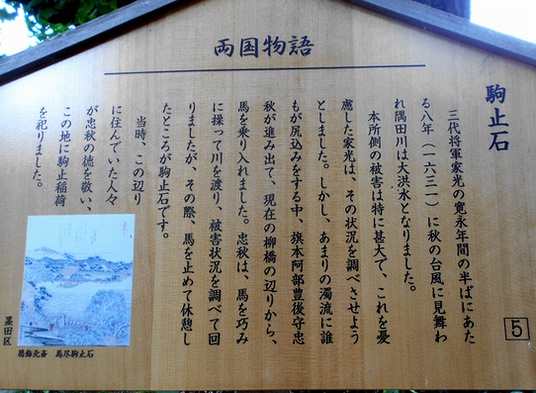 両国物語
駒止石
三代将軍家光の寛永年間の半ばにあた
る八年（一六三一）に秋の台風に見舞わ
れ隅田川は大洪水となりました。
本所側の被害は特に甚大で、これを憂
慮した家光は、その状況を調べさせよう
としました。しかし、あまりの濁流に誰
もが尻込みをする中、旗本阿部豊後守忠
秋が進み出て、現在の柳橋の辺りから、
馬を乗り入れました。忠秋は、馬を巧み
に操って川を渡り、被害状況を調べて回
りましたが、その際、馬を止めて休憩し
たところが駒止石です。
当時、この辺り
に住んでいた人々
が忠秋の徳を敬い、
この地に駒止稲荷
を祀りました。
葛飾北斎　馬尽駒止石
墨田区
5